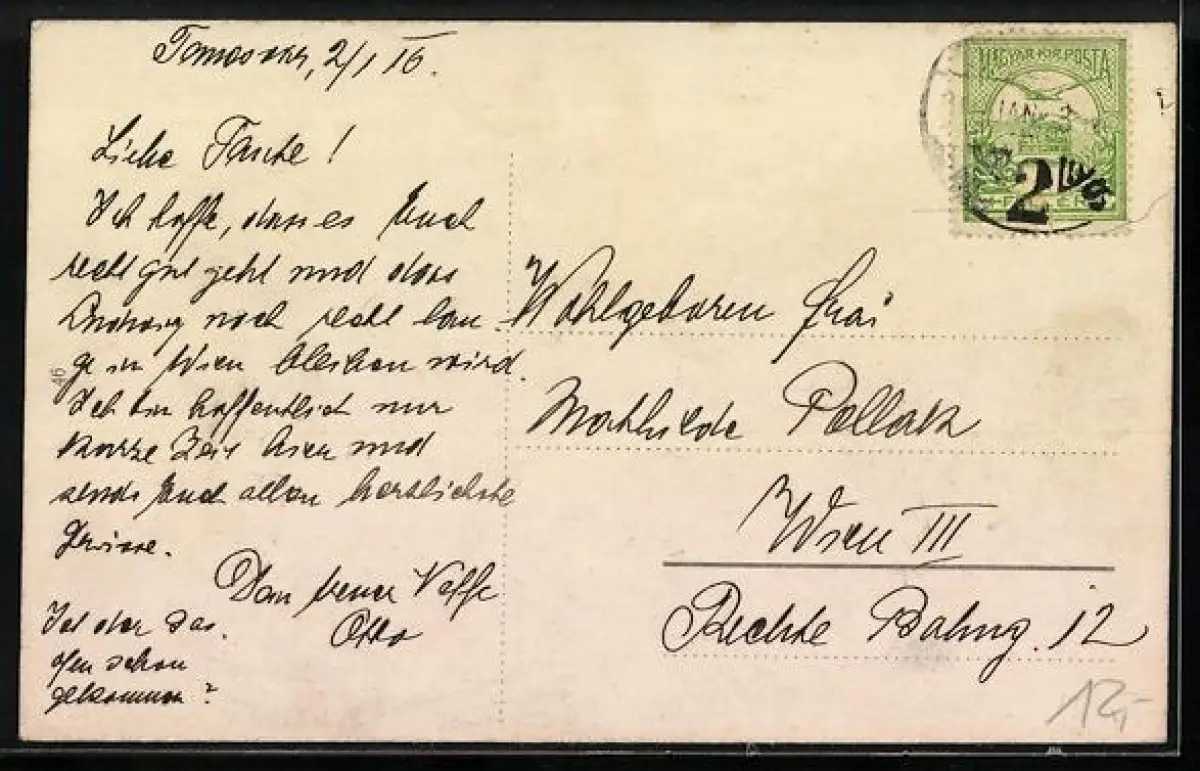 Temesvar, 2/I 16.
Liebe Tante!
Ich hoffe, dass es Euch
recht gut geht und dass
noch recht lan-
ge in Wien bleiben wird.
Ich bin hoffentlich nur
kurze Zeit hier und
sende Euch allen herzlichste
Grüsse.
Dein treuer Neffe
Otto
Ist der
schon
gekommen?
MAGYAR KIR. POSTA
JAN
2
Wohlgeboren Frau
Mathilde Pollak
Wien III
Rechte Bahng. 12
46
12,-